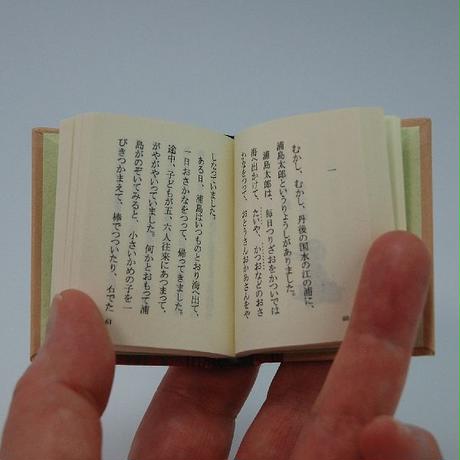 一
むかし、むかし、丹後の国水の江の浦に、
浦島太郎というりょうしがありました。
浦島太郎は、毎日つりざおをかついでは
海へ出かけて、たいや、かつおなどのおさ
かなをつって、おとうさんおかあさんをや
60
しなっていました。
ある日、浦島はいつものとおり海へ出て、
一日おさかなをつって、帰ってきました。
途中、子どもが五、六人往来にあつまって、
がやがやいっていました。何かとおもって浦
島がのぞいてみると、小さいかめの子を一
ぴきつかまえて、棒でつついたり、石でた
61